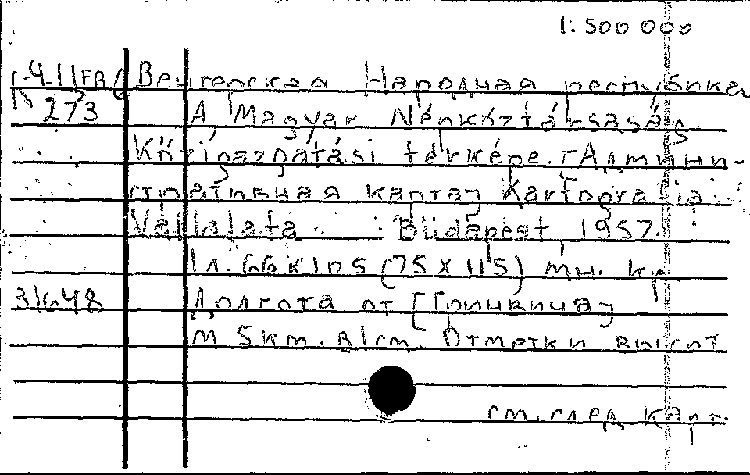 1: 500 000
Венгерская Народная республика
273 A Magyar Népköztársaság
Közigazgatási térképe. [Админи-
стративная карта] Kartografiai
Vállalata Budapest 1957.
1л. 66 x 105 (75 x 115) мн. кр
31648 Долгота от [Гринвича]
М 5km. в 1cm. Отметки высот
см. след. карт.